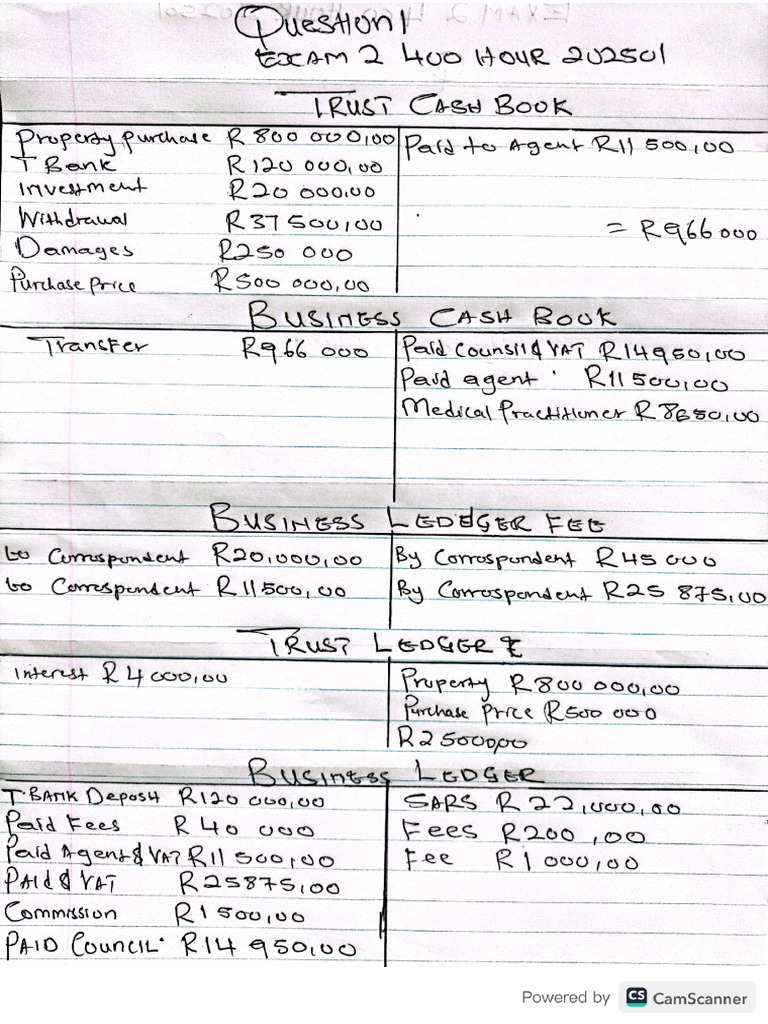 Question 1
EXAM 2 400 HOUR 202501
TRUST CASH BOOK
Property purchase R 800 000,00 Paid to Agent R11 500,00
T Bank R120 000,00
Investment R20 000,00
Withdrawal R37 500,00 = R966 000
Damages R250 000
Purchase Price R500 000,00
BUSINESS CASH BOOK
Transfer R966 000 Paid Counsil & VAT R14950,00
Paid agent R11 500,00
Medical Practitioner R 8650,00
BUSINESS LEDEGER FEE
to Correspondent R20,000,00 By Correspondent R45 000
to Correspondent R11500,00 By Correspondent R25 875,00
TRUST LEDGER
Interest R4000,00 Property R800 000,00
Purchase Price R500 000
R250000,00
BUSINESS LEDGER
T.BANK Deposit R120 000,00 SARS R22,000,00
Paid Fees R40 000 Fees R200,00
Paid Agent & VAT R11 500,00 Fee R1 000,00
PAID & VAT R25875,00
Commission R1 500,00
PAID COUNCIL. R14 950,00
Powered by CS CamScanner